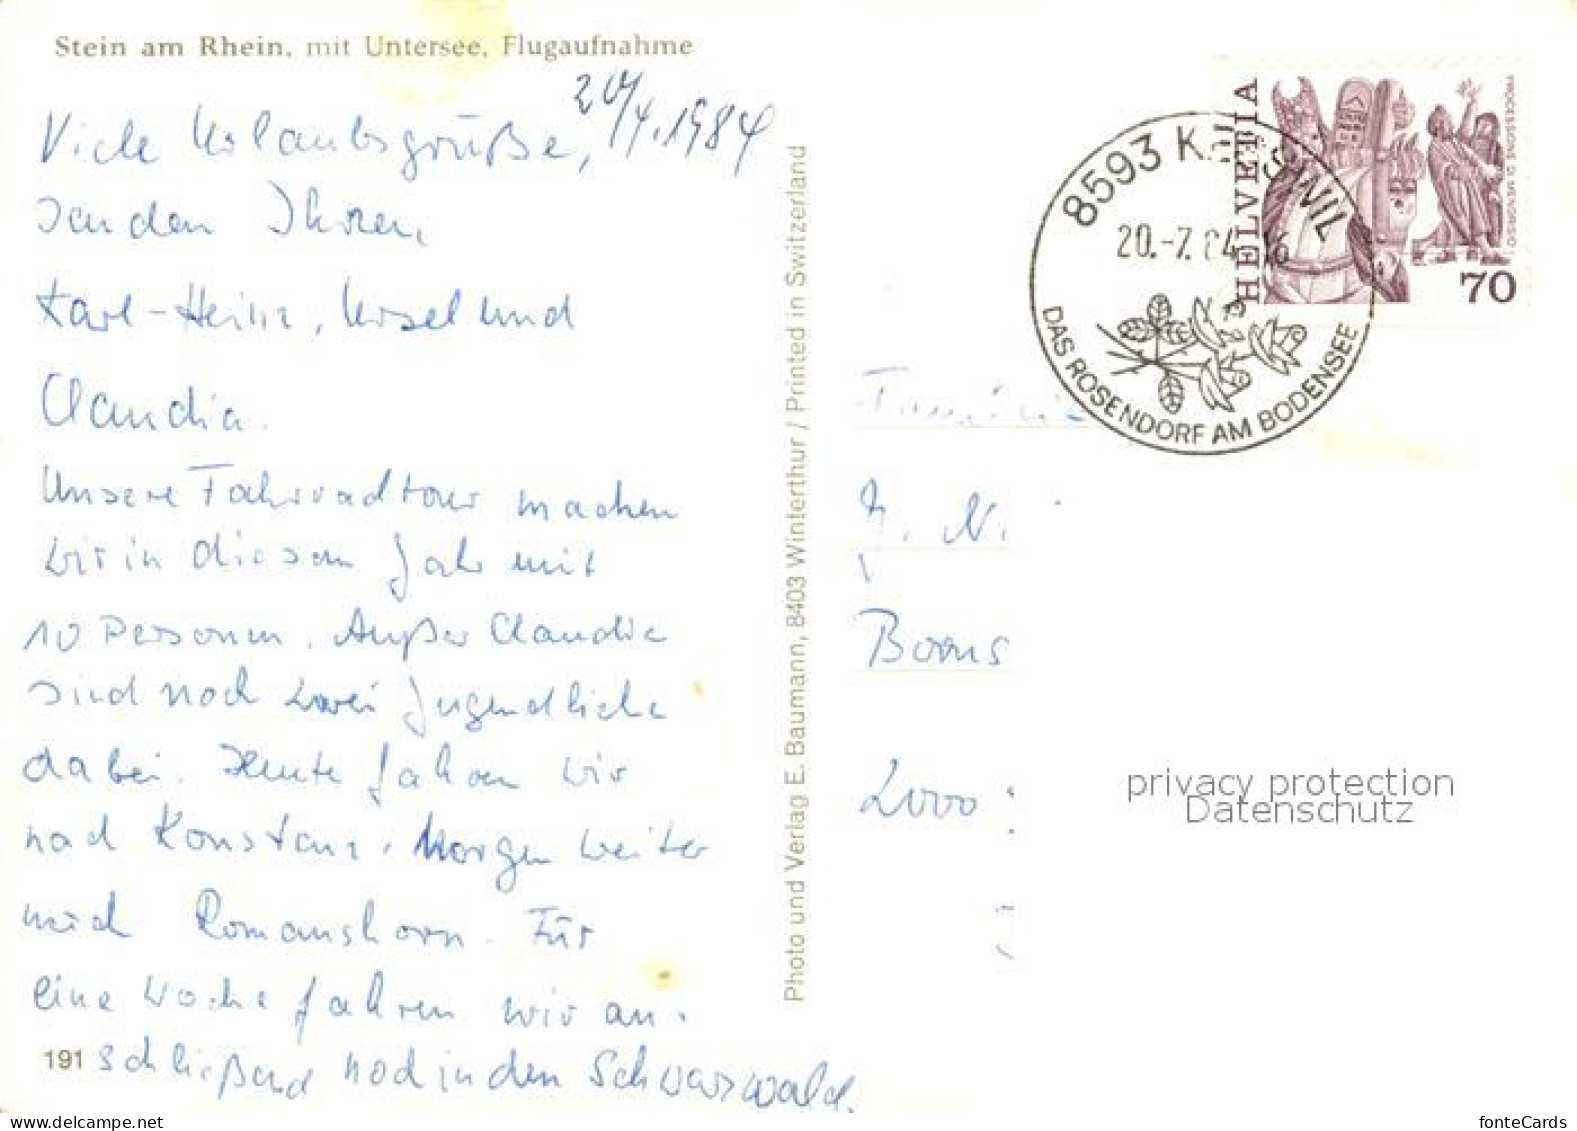 Stein am Rhein, mit Untersee, Flugaufnahme
20/7.1984
Viele Urlaubsgrüße,
senden Ihnen,
Karl-Heinz, Ursel und
Claudia.
Unsere Fahrradtour machen
wir in diesem Jahr mit
10 Personen. Außer Claudia
sind noch zwei Jugendliche
dabei. Heute fahren wir
nach Konstanz. Morgen weiter
nach Romanshorn. Für
eine Woche fahren wir an-
191 schließend noch in den Schwarzwald.
Photo und Verlag E. Baumann, 8403 Winterthur / Printed in Switzerland
HELVETIA
PROCESSIONE DI MENDRISIO
70
8593 KESSWIL
20.-7.84-16
DAS ROSENDORF AM BODENSEE
Familie
N.
Borns
2000
privacy protection
Datenschutz
fonteCards